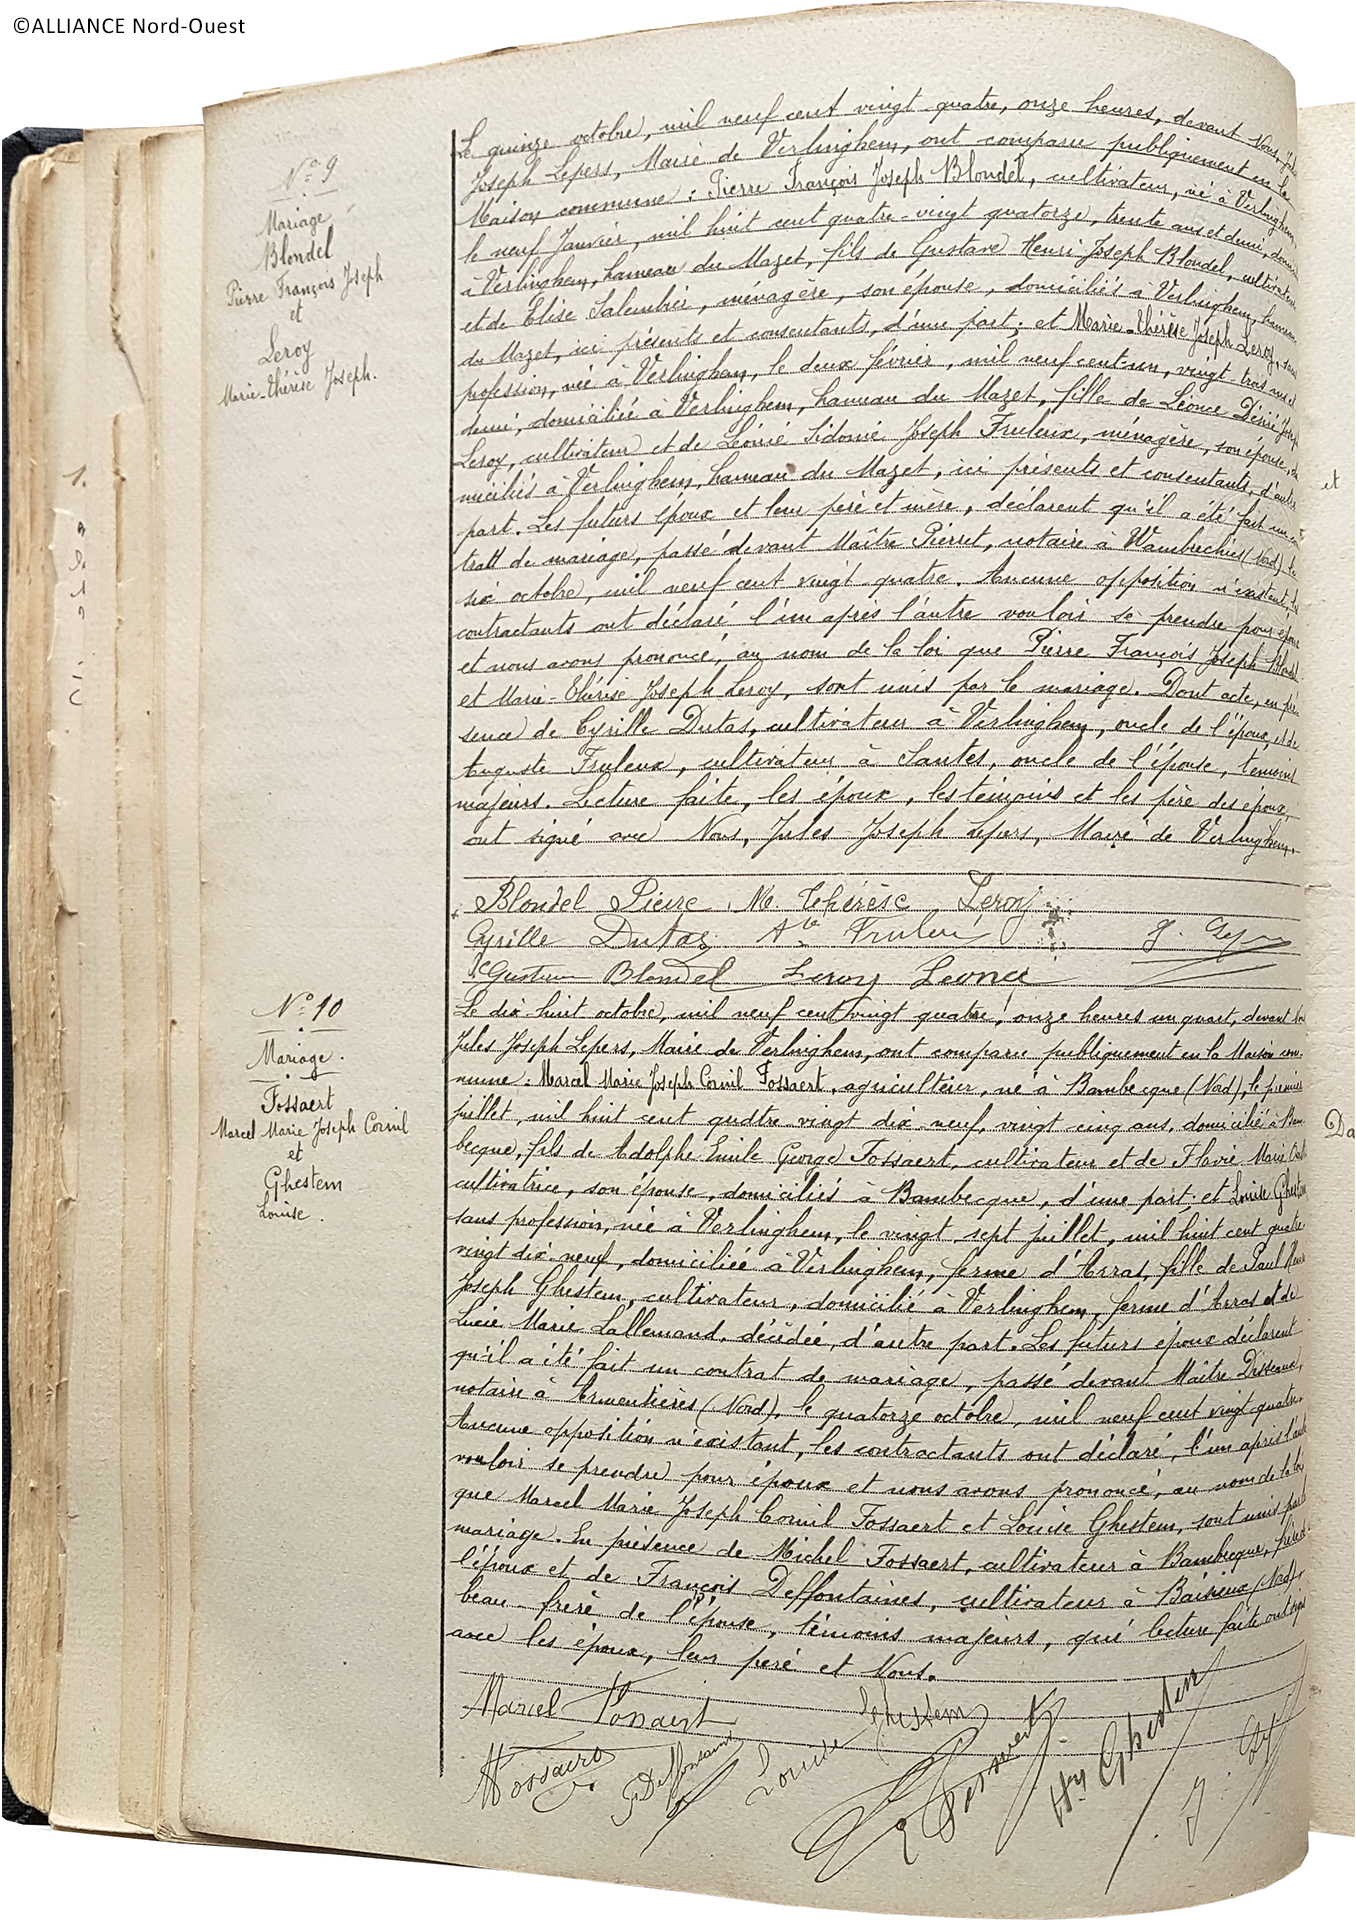 ©ALLIANCE Nord-Ouest
N° 9
Mariage
Blondel
Pierre François Joseph
et
Leroy
Marie-Thérèse Joseph.
Le quinze octobre, mil neuf cent vingt quatre, onze heures, devant Nous, Jules
Joseph Lepers, Maire de Verlinghem, ont comparu publiquement en la
Maison commune : Pierre François Joseph Blondel, cultivateur, né à Verlinghem,
le neuf Janvier, mil huit cent quatre-vingt quatorze, trente ans et demi, domicilié
à Verlinghem, hameau du Mazet, fils de Gustave Henri Joseph Blondel, cultivateur
et de Elise Salembier, ménagère, son épouse, domiciliés à Verlinghem, hameau
du Mazet, ici présents et consentants, d'une part ; et Marie-Thérèse Joseph Leroy, sans
profession, née à Verlinghem, le deux février, mil neuf cent-un, vingt trois ans et
demi, domiciliée à Verlinghem, hameau du Mazet, fille de Léonce Désiré Joseph
Leroy, cultivateur et de Léonie Sidonie Joseph Fruleux, ménagère, son épouse, do
miciliés à Verlinghem, hameau du Mazet, ici présents et consentants, d'autre
part. Les futurs époux et leur père et mère, déclarent qu'il a été fait un con
trat de mariage, passé devant Maître Pierret, notaire à Wambrechies (Nord) le
six octobre, mil neuf cent vingt-quatre. Aucune opposition n'existant, les
contractants ont déclaré l'un après l'autre vouloir se prendre pour époux
et nous avons prononcé, au nom de la loi que Pierre François Joseph Blondel
et Marie-Thérèse Joseph Leroy, sont unis par le mariage. Dont acte, en pré
sence de Cyrille Dutas, cultivateur à Verlinghem, oncle de l'époux, et de
Auguste Fruleux, cultivateur à Santes, oncle de l'épouse, témoins
majeurs. Lecture faite, les époux, les témoins et les père des époux,
ont signé avec Nous, Jules Joseph Lepers, Maire de Verlinghem.
Blondel Pierre M. Thérèse Leroy
Cyrille Dutas Ate Fruleux J. Lepers
Gustave Blondel Leroy Léonce
N° 10
Mariage.
Fossaert
Marcel Marie Joseph Cornil
et
Ghestem
Louise.
Le dix-huit octobre, mil neuf cent vingt quatre, onze heures un quart, devant Nous
Jules Joseph Lepers, Maire de Verlinghem, ont comparu publiquement en la Maison com-
mune : Marcel Marie Joseph Cornil Fossaert, agriculteur, né à Bambecque (Nord), le premier
juillet, mil huit cent quatre vingt dix-neuf, vingt cinq ans, domicilié à Bam
becque, fils de Adolphe Emile George Fossaert, cultivateur et de Flavie Marie
cultivatrice, son épouse, domiciliés à Bambecque, d'une part ; et Louise Ghestem
sans profession, née à Verlinghem, le vingt-sept juillet, mil huit cent quatre
vingt dix-neuf, domiciliée à Verlinghem, ferme d'Arras, fille de Paul Henri
Joseph Ghestem, cultivateur, domicilié à Verlinghem, ferme d'Arras et de
Lucie Marie Lallemand, décédée, d'autre part. Les futurs époux déclarent
qu'il a été fait un contrat de mariage, passé devant Maître
notaire à Armentières (Nord), le quatorze octobre, mil neuf cent vingt-quatre.
Aucune opposition n'existant, les contractants ont déclaré, l'un après l'autre
vouloir se prendre pour époux et nous avons prononcé, au nom de la loi
que Marcel Marie Joseph Cornil Fossaert et Louise Ghestem, sont unis par le
mariage. En présence de Michel Fossaert, cultivateur à Bambecque, frère de
l'époux et de François Deffontaines, cultivateur à Baisieux (Nord),
beau-frère de l'épouse, témoins majeurs, qui lecture faite ont signé
avec les époux, leur père et Nous.
Marcel Fossaert Louise Ghestem
Fossaert Deffontaines Fossaert Hy Ghestem
et
Da